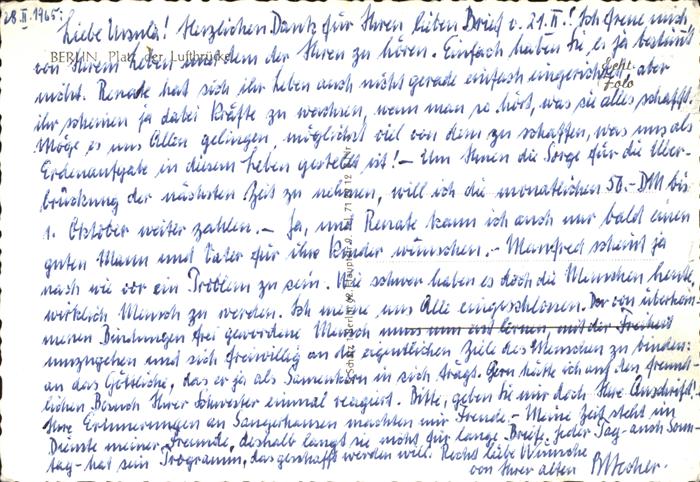 28.II.1965:
Liebe Ursula! Herzlichen Dank für Ihren lieben Brief v. 21.II.! Ich freue mich
von Ihrem Leben und dem der Ihren zu hören. Einfach haben Sie es ja bestimmt
BERLIN Platz der Luftbrücke
Echt
Foto
nicht. Renate hat sich ihr Leben auch nicht gerade einfach eingerichtet, aber
ihr scheinen ja dabei Kräfte zu wachsen, wenn man so hört, was sie alles schafft.
Möge es uns Allen gelingen, möglichst viel von dem zu schaffen, was uns als
Erdenaufgabe in diesem Leben gestellt ist! – Um Ihnen die Sorge für die Über-
brückung der nächsten Zeit zu nehmen, will ich die monatlichen 50.- DM bis
1. Oktober weiter zahlen. – Ja, und Renate kann ich auch nur bald einen
guten Mann und Vater für ihre Kinder wünschen. – Manfred scheint ja
nach wie vor ein Problem zu sein. Wie schwer haben es doch die Menschen heute,
wirklich Mensch zu werden. Ich meine uns Alle eingeschlossen. Der von überkom-
menen Bindungen frei gewordene Mensch muss nun erst lernen, mit der Freiheit
umzugehen und sich freiwillig an die eigentlichen Ziele des Menschen zu binden:
an das Göttliche, das er ja als Samenkorn in sich trägt. Gern hätte ich auf den freund-
lichen Besuch Ihrer Schwester einmal reagiert. Bitte, geben Sie mir doch Ihre Anschrift.
Ihre Erinnerungen an Sangerhausen machten mir Freude. – Meine Zeit steht im
Dienste meiner Freunde, deshalb langt sie nicht für lange Briefe. Jeder Tag - auch Sonn-
tag - hat sein Programm, das geschafft werden will. Recht liebe Wünsche
von Ihrer alten